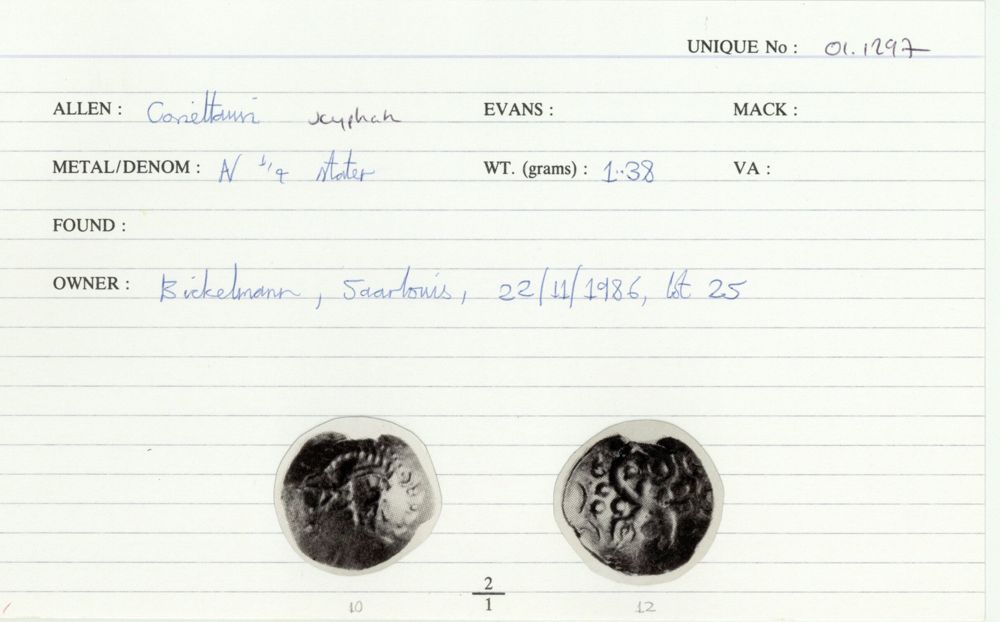 UNIQUE No : 01.1297
ALLEN : Corieltauvi scyphate EVANS : MACK :
METAL/DENOM : N 1/4 stater WT. (grams) : 1.38 VA :
FOUND :
OWNER : Bickelmann, Saarlouis, 22/11/1986, lot 25
2
1
10 12